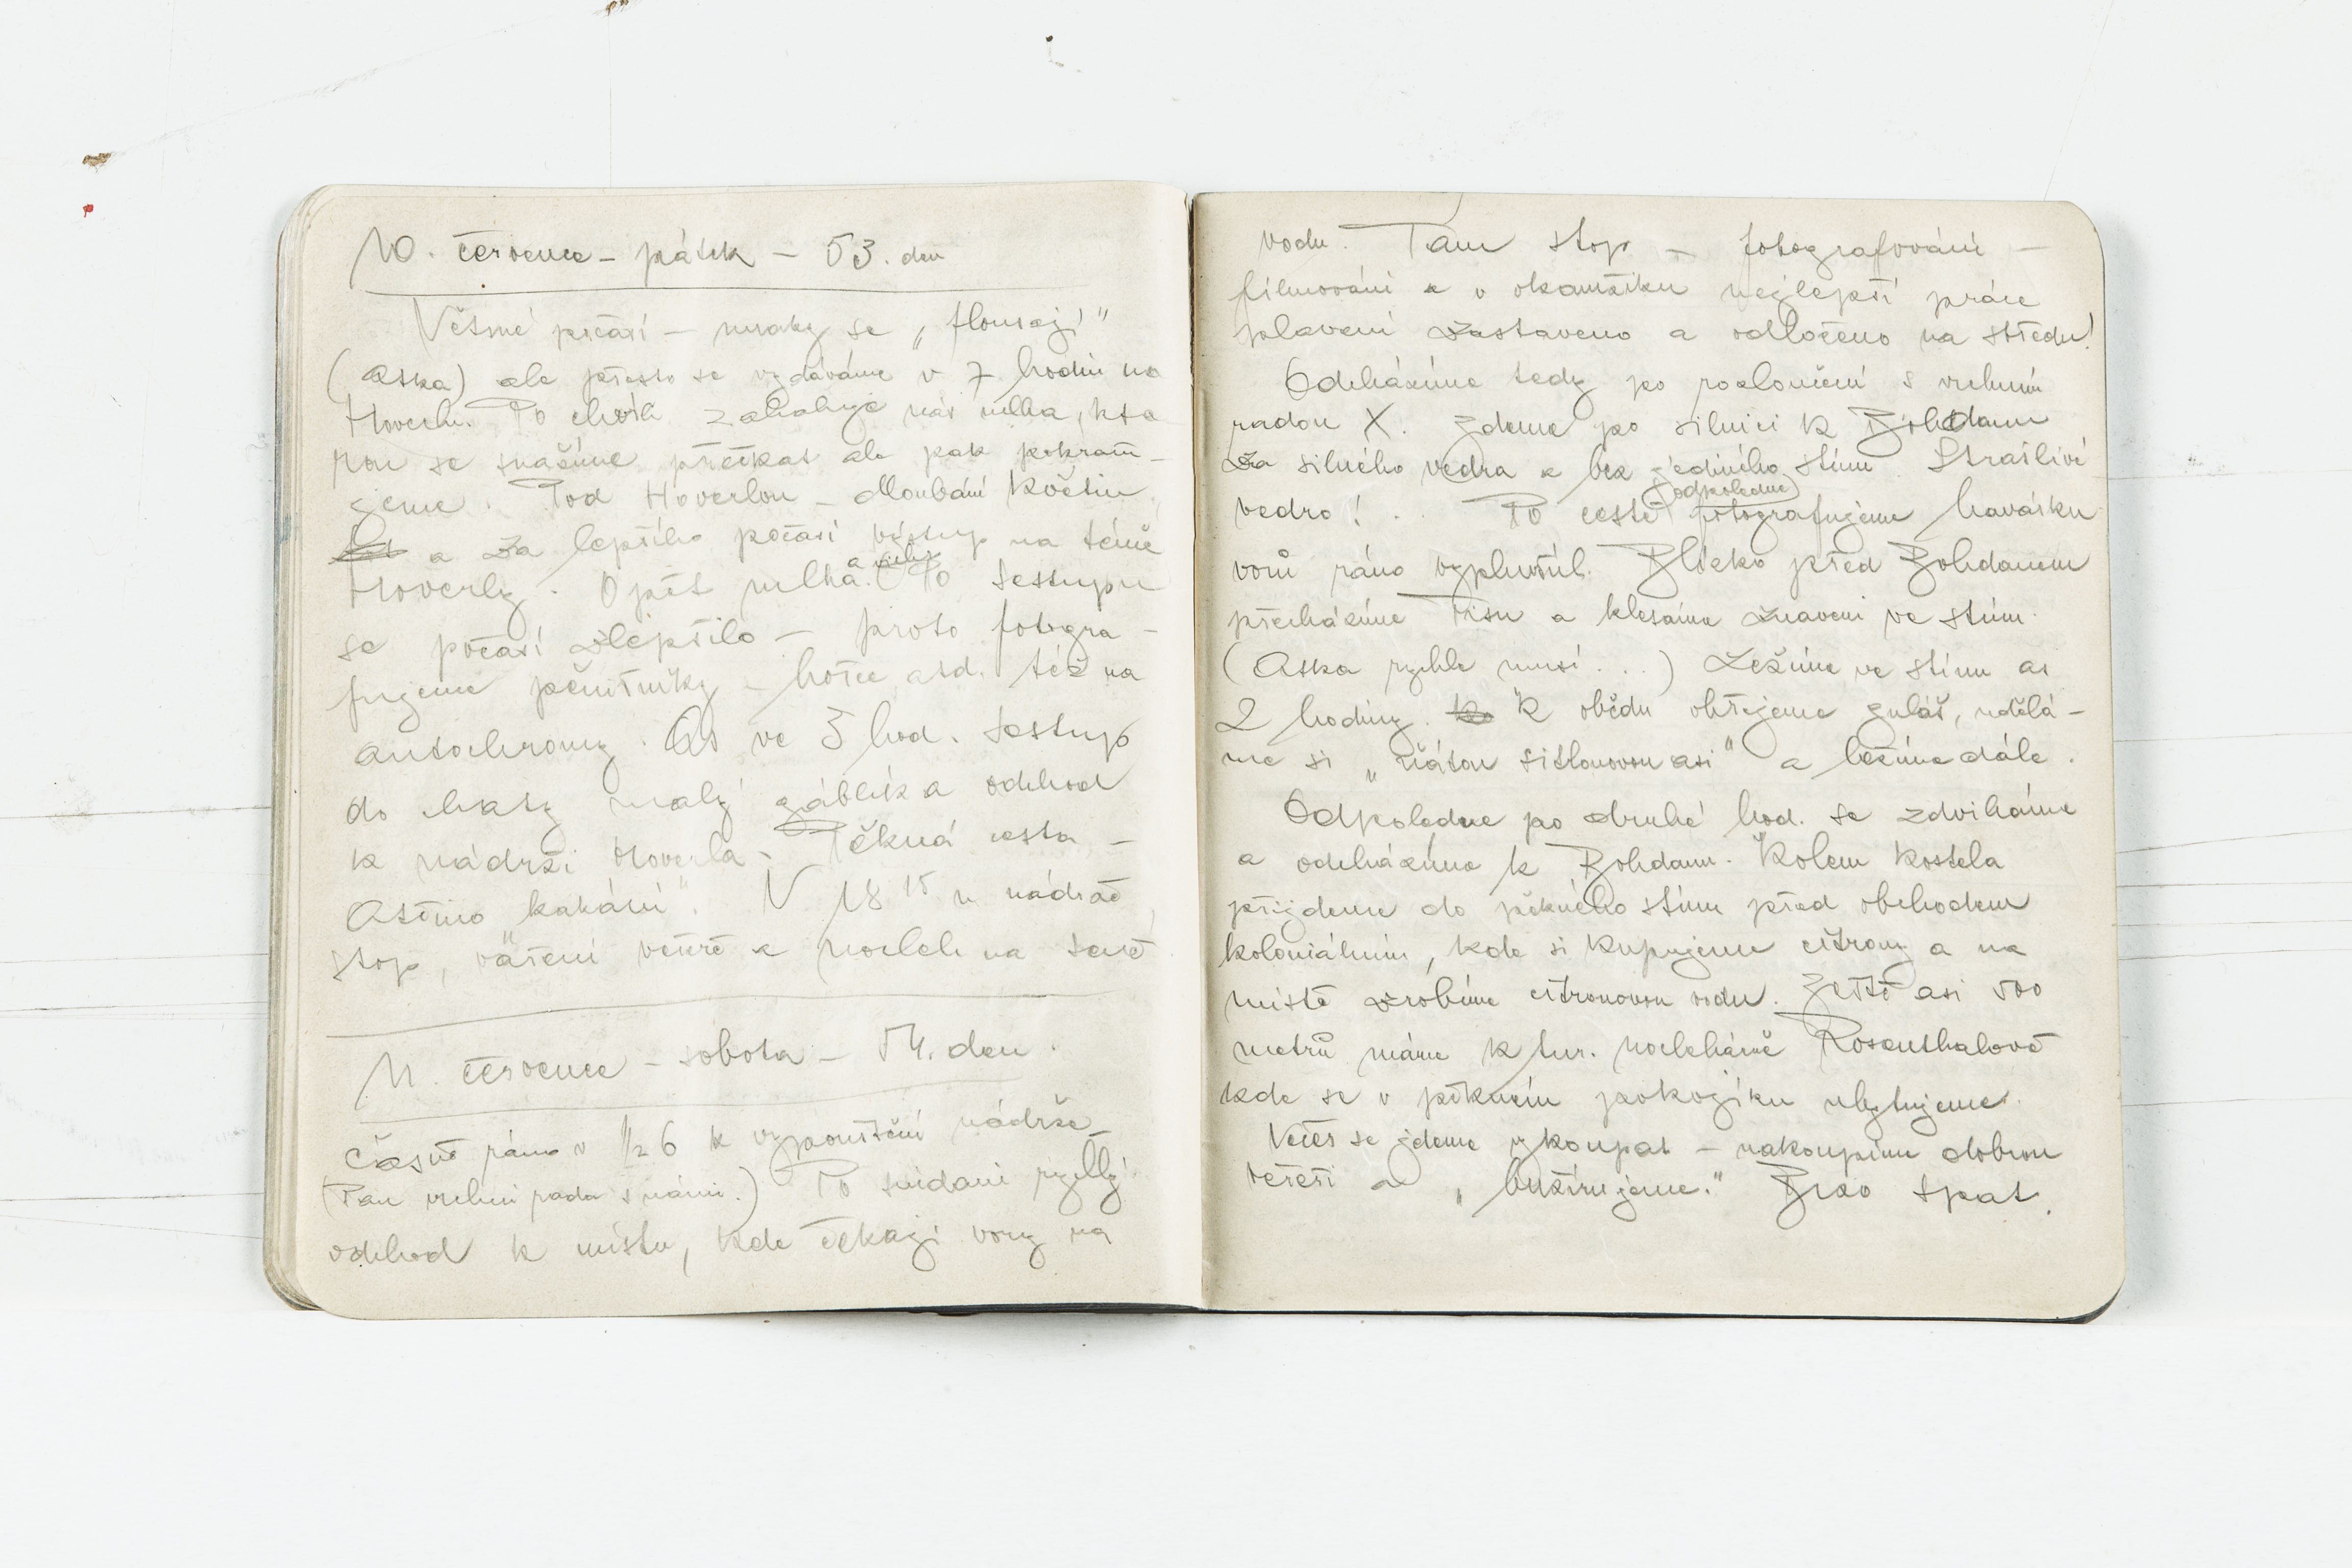 10. července – pátek – 53. den
Větrné počasí – mraky se „flousají"
(Aska) ale přesto se vydáváme v 7 hodin na
Hoverlu. Po chvíli zahaluje nás mlha, kte
rou se snažíme přečkat ale pak pokraču-
jeme. Pod Hoverlou – dloubání květin
a za lepšího počasí výstup na témě
Hoverly. Opět mlha. Po sestupu
se počasí zlepšilo – proto fotogra-
fujeme pěnišníky – hořce atd. též na
autochromy. As ve 3 hod. sestup
do chaty malý gáblík a odchod
k nádrži Hoverla. Pěkná cesta –
Asčino „kakání". V 18 15 u nádrže
stop, vaření večeře a nocleh na seně
11. července – sobota – 54. den.
Časně ráno v 1/2 6 k vypouštění nádrže
(Pan vrchní rada s námi.) Po snídani rychlý
odchod k místu, kde čekají vory na
vodu. Tam stop – fotografování –
filmování a v okamžiku nejlepší práce
plavení zastaveno a odloženo na středu!
Odcházíme tedy po rozloučení s vrchním
radou X. Jdeme po silnici k Bohdanu
za silného vedra a bez jediného stínu. Strašlivé
vedro! . Po cestě (odpoledne) fotografujeme havárku
vorů ráno vypluvších. Blízko před Bohdanem
přecházíme Tisu a klesáme znaveni ve stínu.
(Aska rychle musí...) Ležíme ve stínu as
2 hodiny. K obědu ohřejeme guláš, udělá-
me si „ňátou sitlonovou asi" a běžíme dále.
Odpoledne po druhé hod. se zdviháme
a odcházíme k Bohdanu. Kolem kostela
přijdeme do pěkného stínu před obchodem
koloniálním, kde si kupujeme citrony a na
místě zrobíme citronovou vodu. Ještě asi 500
metrů máme k tur. noclehárně Rosenthalově
kde se v pěkném pokojíku ubytujeme.
Večer se jdeme vykoupat – nakoupíme dobrou
večeři a „bužírujeme." Brzo spat.